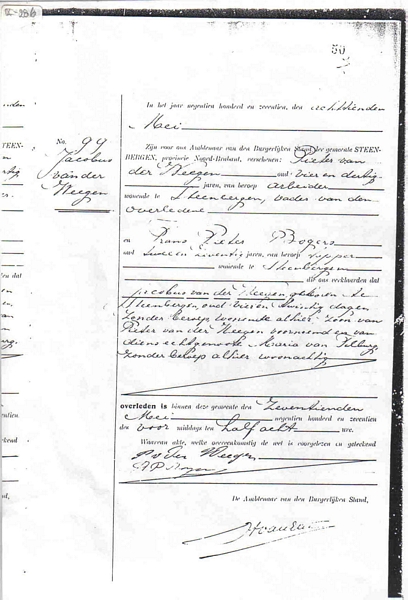 50
In het jaar negentien honderd en zeventien, den achttienden
Mei
No. 99
Jacobus
van der
Weegen
Zijn voor ons Ambtenaar van den Burgerlijken Stand der gemeente STEEN-
BERGEN, provincie Noord-Brabant, verschenen: Pieter van
der Weegen oud vier en dertig
jaren, van beroep arbeider
wonende te Steenbergen, vader van den
overledene
en Frans Pieter Bogers
oud twee en zeventig jaren, van beroep
wonende te Steenbergen
die ons verklaarden dat
Jacobus van der Weegen geboren te
Steenbergen, oud vier en twintig dagen
zonder beroep wonende alhier, zoon van
Pieter van der Weegen voornoemd en van
diens echtgenoote Maria van Tilburg
zonder beroep alhier woonachtig
overleden is binnen deze gemeente den zeventienden
Mei negentien honderd en zeventien
des voor middags ten half acht ure.
Waarvan akte, welke overeenkomstig de wet is voorgelezen en geteekend
P v der Weegen
De Ambtenaar van den Burgerlijken Stand,